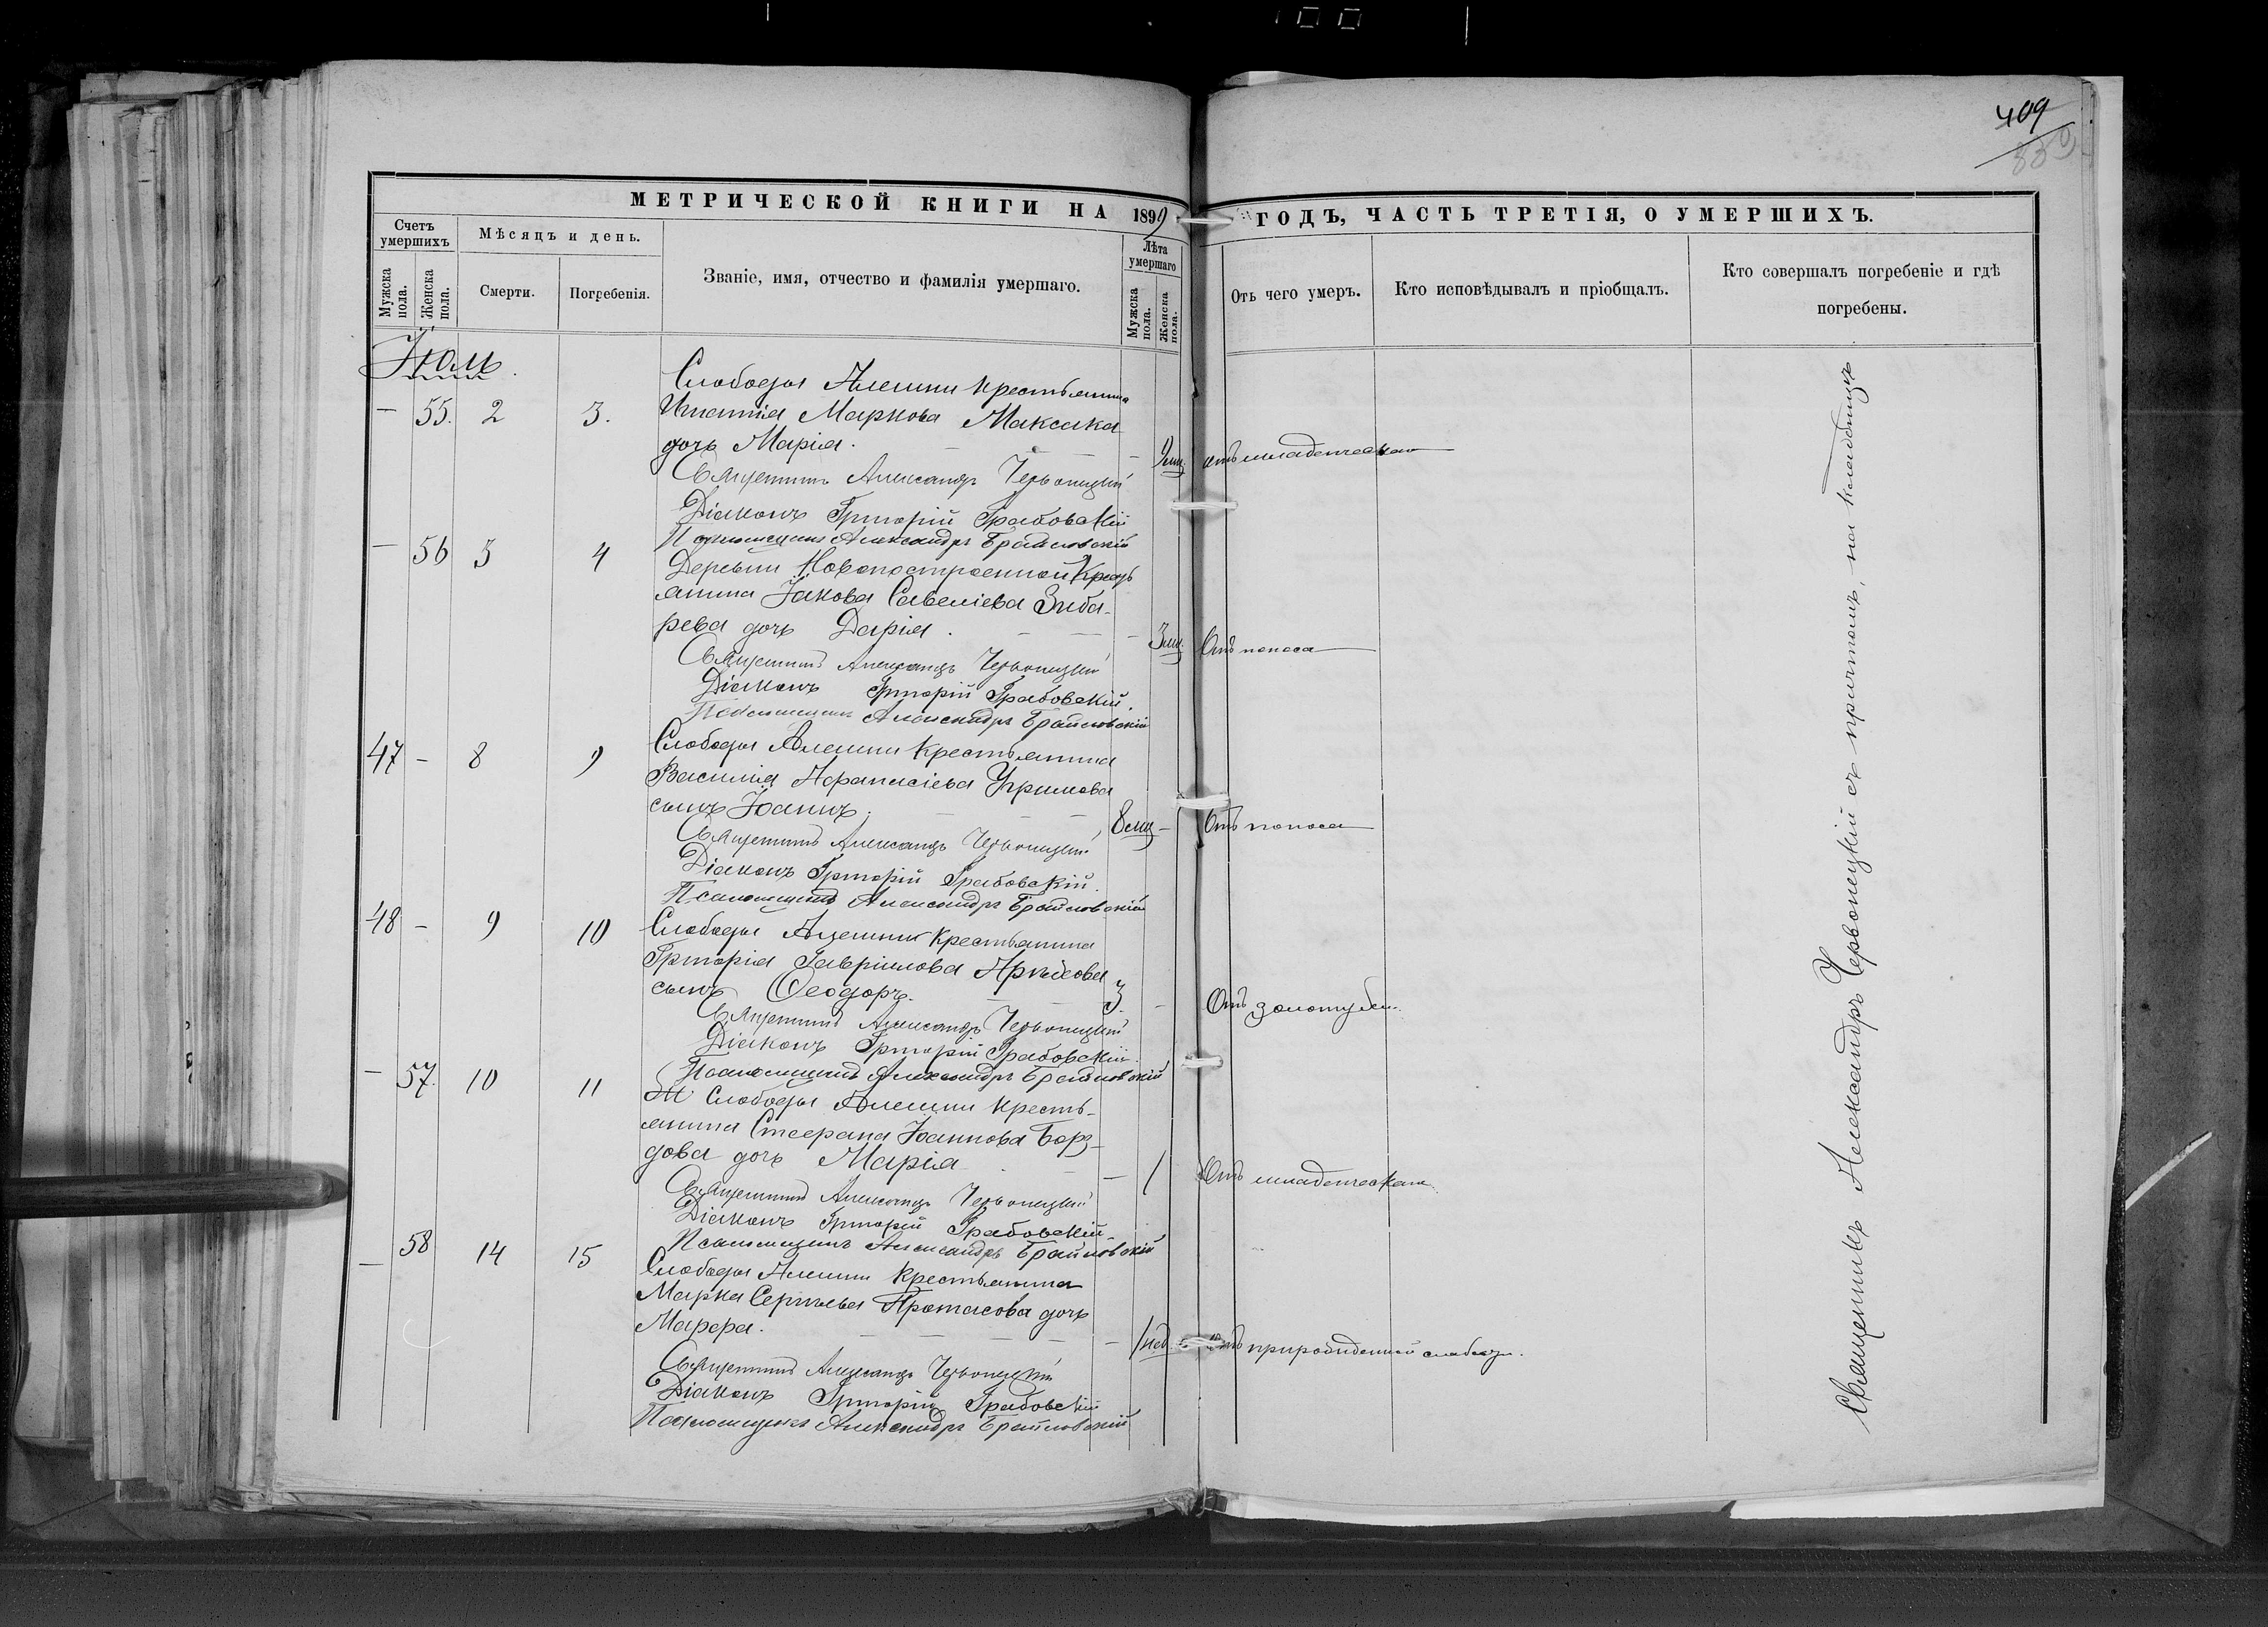 409
339
МЕТРИЧЕСКОЙ КНИГИ НА 1899 ГОДЪ, ЧАСТЬ ТРЕТІЯ, О УМЕРШИХЪ.
Счетъ умершихъ
Мужска пола.
Женска пола.
Мѣсяцъ и день.
Смерти.
Погребенія.
Званіе, имя, отчество и фамилія умершаго.
Лѣта умершаго
Мужска пола.
Женска пола.
Отъ чего умеръ.
Кто исповѣдывалъ и пріобщалъ.
Кто совершалъ погребеніе и гдѣ погребены.
Іюль
Слободы Алешни крестьянина
— 55. 2 3. Игнатія Маркова Максака
дочь Марія. — 9 мц. отъ младенческаго
Священникъ Александръ Червонецкій
Діаконъ Григорій Грабовскій
Псаломщикъ Александръ Браиловскій
— 56 3 4 Деревни Новопостроенной Кресть
янина Іакова Савеліева Зиба-
рева дочь Дарія. — 3 мц. Отъ поноса
Священникъ Александръ Червонецкій
Діаконъ Григорій Грабовскій.
Псаломщикъ Александръ Браиловскій
47 — 8 9 Слободы Алешни крестьянина
Василія Афанасіева Угримова
сынъ Іоаннъ. 8 мц — Отъ поноса
Священникъ Александръ Червонецкій
Діаконъ Григорій Грабовскій.
Псаломщикъ Александръ Браиловскій
48 — 9 10 Слободы Алешни крестьянина
Григорія Гавріилова
сынъ Ѳеодоръ. 3. — Отъ золотухи.
Священникъ Александръ Червонецкій
Діаконъ Григорій Грабовскій.
Псаломщикъ Александръ Браиловскій
— 57. 10 11 Слободы Алешни кресть-
янина Стефана Іоаннова Борз-
дова дочь Марія — 1 Отъ младенческаго.
Священникъ Александръ Червонецкій
Діаконъ Григорій Грабовскій.
Псаломщикъ Александръ Браиловскій
— 58 14 15 Слободы Алешни крестьянина
Марка Сергѣева Протасова дочь
Марфа. — 1 нед. Отъ природженной слабости.
Священникъ Александръ Червонецкій
Діаконъ Григорій Грабовскій
Псаломщикъ Александръ Браиловскій
Священникъ Александръ Червонецкій съ причтомъ, на кладбищѣ